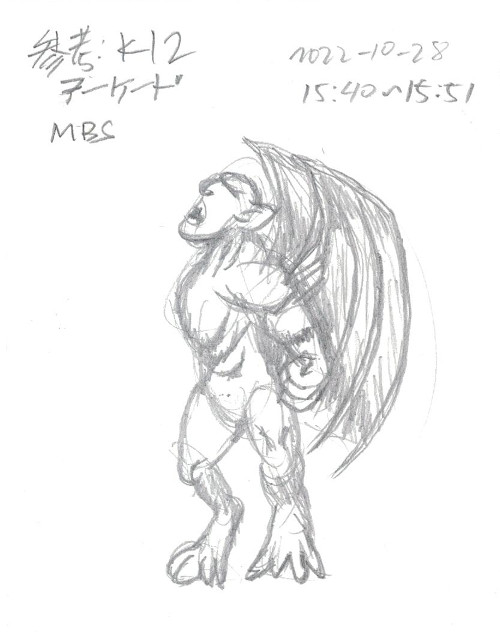 参考: K-12
アーケード
MBS
2022-10-28
15:40~15:51